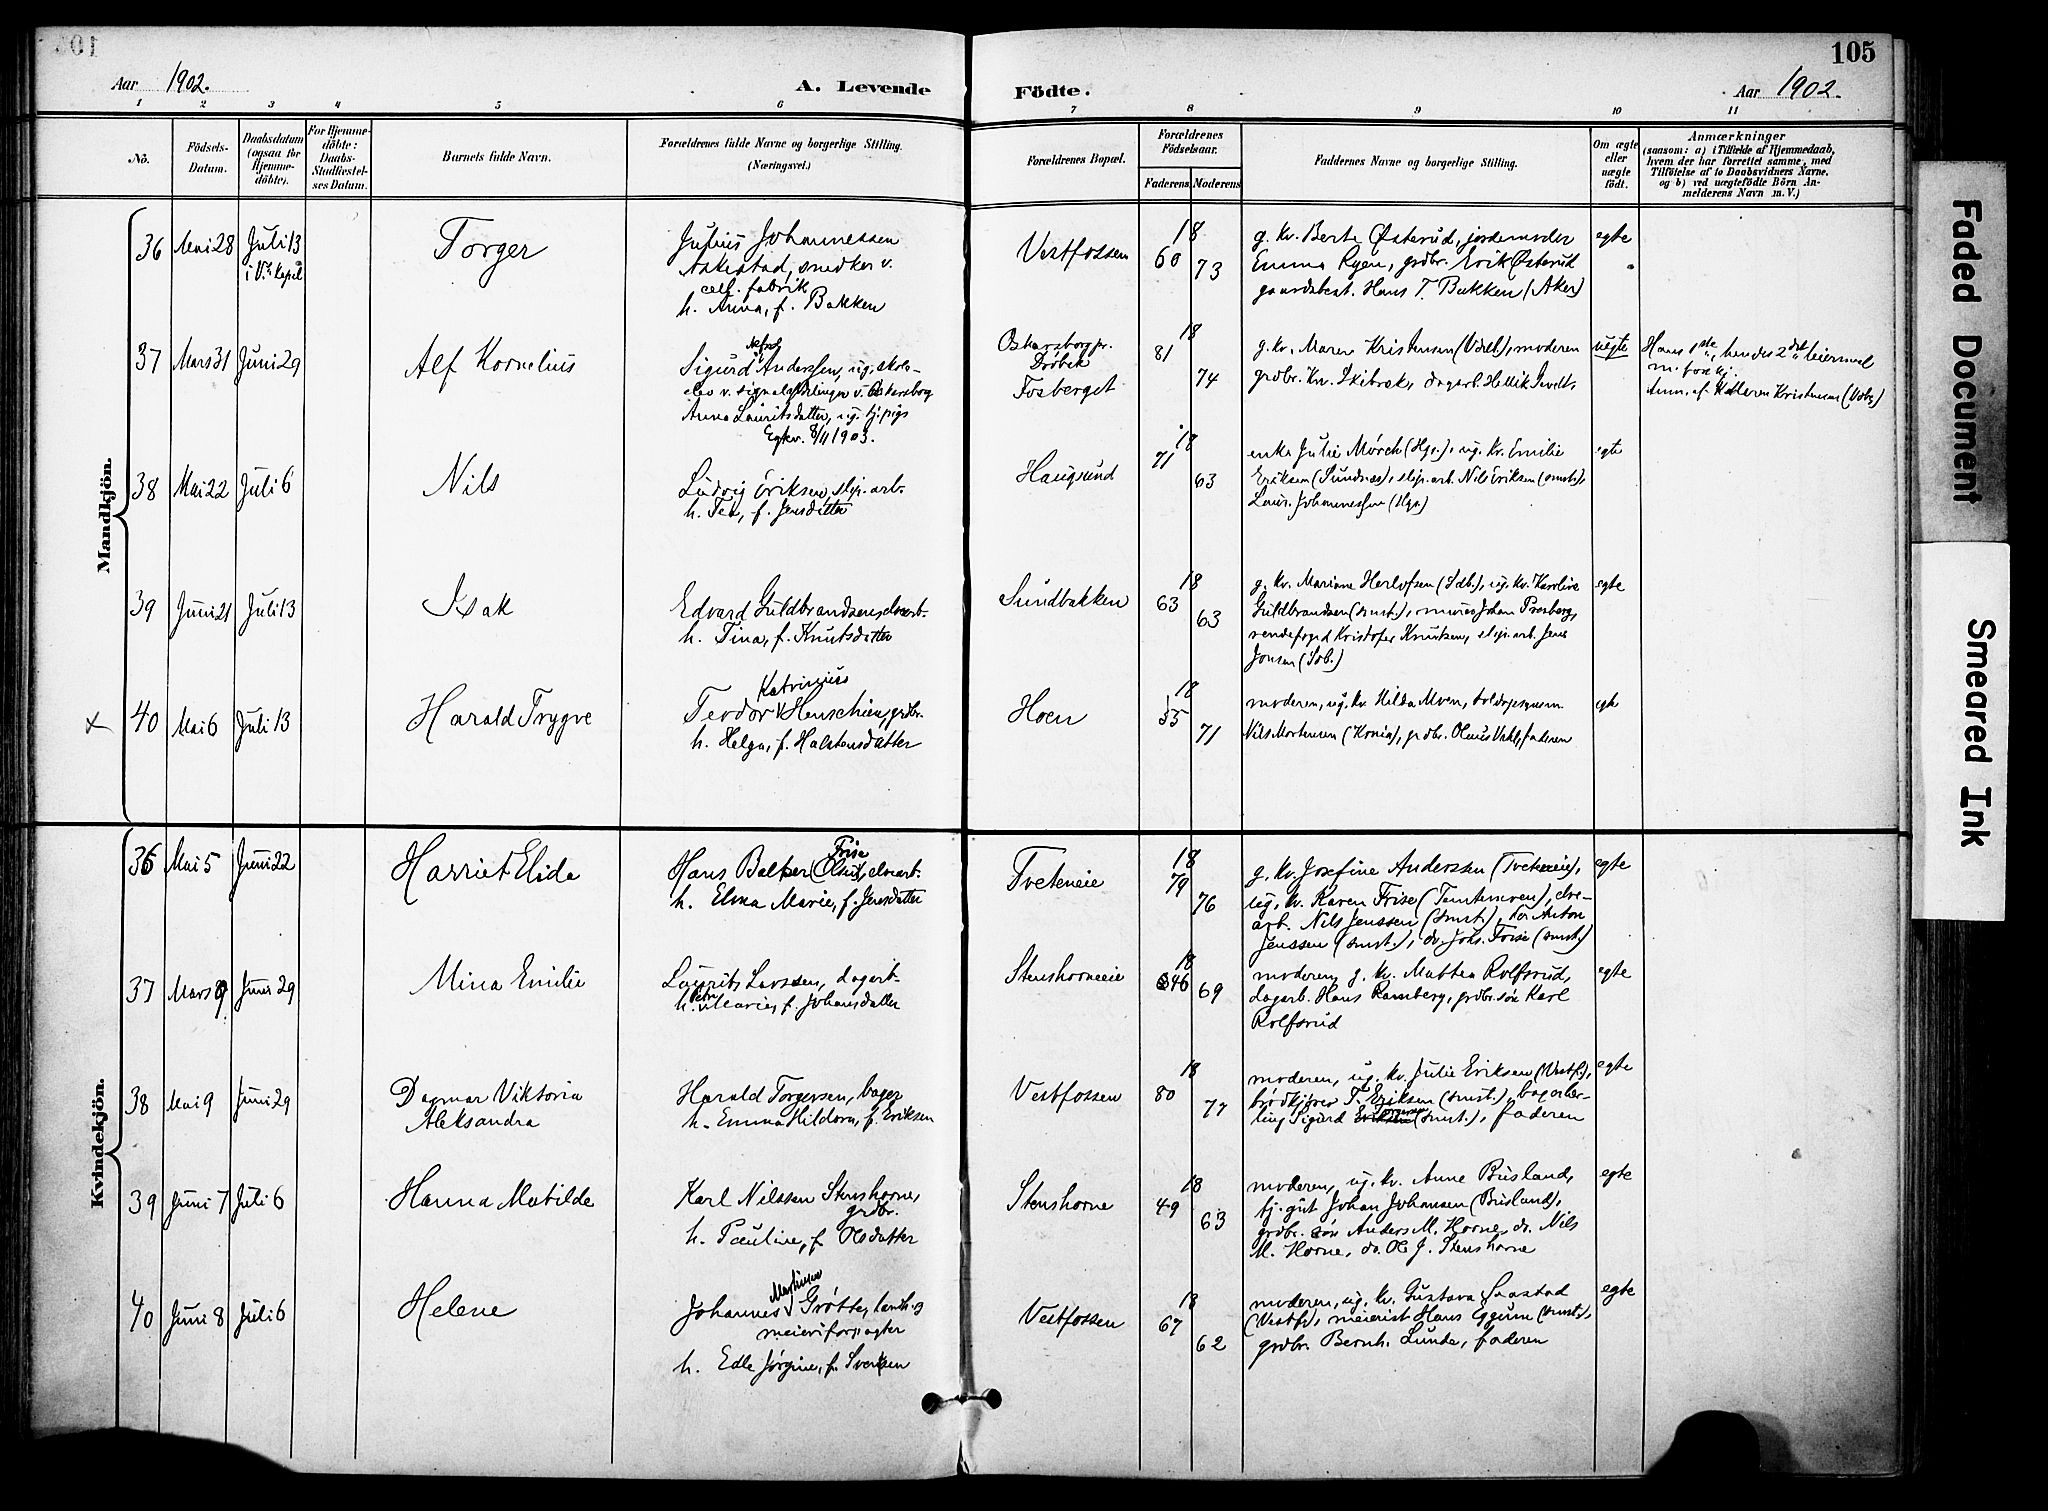 105
Aar 1902.
A. Levende Födte.
Aar 1902.
1 2 3 4 5 6 7 8 9 10 11
No.
Födsels-
Datum.
Daabsdatum
(ogsaa for
Hjemme-
döbte).
For Hjemme-
döbte:
Daabs-
Stadfæstel-
ses Datum.
Barnets fulde Navn.
Forældrenes fulde Navne og borgerlige Stilling.
(Næringsvei.)
Forældrenes Bopæl.
Forældrenes
Födselsaar.
Faderens. Moderens.
Faddernes Navne og borgerlige Stilling.
Om ægte
eller
uægte
födt.
Anmærkninger
(saasom: a) i Tilfælde af Hjemmedaab,
hvem der har forrettet samme, med
Tilföielse af to Daabsvidners Navne,
og b) ved uægtefödte Börn An-
melderens Navn m. V.)
Mandkjön.
36 Mai 28 Juli 13
i V. kapel
Torger
Julius Johannessen
Askestad, snedker v.
cell. fabrik
h. Anna, f. Bakken
Vestfossen
18
60 73
g. kv. Berte Østerud, jordemoder
Emma Ryen, grdbr. Erik Østerud
gaardsbest. Hans T. Bakken (Aker)
egte
37 Mars 31 Juni 29
Alf Kornelius
Sigurd Anderssen, ug. skole-
elev v. signalafdelingen v. Oskarsborg
Anna Lauritsdatter, ug. tj.pige
Egtev. 8/11 1903.
Oskarsborg pr.
Drøbak
Fosberget
18
81 74
g. kv. Maren Kristensen, moderen
uegte
Hans 1ste, hendes 2det leiermaal
38 Mai 22 Juli 6
Nils
Ludvig Eriksen, slip. arb.
h. Tea, f. Jensdatter
Haugsund
18
71 63
enke Julie Mørch (Hgs.), ug. kv. Emilie
Eriksen (Sundnæs), slip. arb. Nils Eriksen (smst.),
Laur. Johannessen (Hgs.)
egte
39 Juni 21 Juli 13
Isak
Edvard Guldbrandsen, elvearb.
h. Tina, f. Knutsdatter
Sundbakken
18
63 63
g. kv. Mariane Herlofsen (Sdb.), ug. kv. Karoline
Guldbrandsen (smst.), murer Johan Prosberg,
rendefoged Kristofer Knutsen, slip. arb. Jens
Jonsen (Sdb.)
egte
x 40 Mai 6 Juli 13
Harald Trygve
Katrinius
Teodor Henschien, grdbr.
h. Helga, f. Halstensdatter
Hoen
18
55 71
moderen, ug. kv. Hilda Moen,
Nils Mortensen, grdbr. Olaus Vahl, faderen
egte
Kvindekjön.
36 Mai 5 Juni 22
Harriet Elida
Frise
Hans Balser Olsen, elvearb.
h. Elma Marie, f. Jensdatter
Tveteneie
18
79 76
g. kv. Josefine Anderssen (Tveteneie),
ug. kv. Karen Frise (Temtemoren), elve-
arb. Nils Jenssen (smst.), do. Anton
Jenssen (smst.), do. Johs. Frise (smst.)
egte
37 Mars 9 Juni 29
Mina Emilie
Laurits Larssen, dagarb.
h. Marie, f. Johansdatter
Stenshorneeie
18
46 69
moderen, g. kv. Mattea Rolfsrud,
dagarb. Hans Ramberg, grdbr. søn Karl
Rolfsrud
egte
38 Mai 9 Juni 29
Dagmar Viktoria
Aleksandra
Harald Torgersen, bager
h. Emma Hildora, f. Eriksen
Vestfossen
18
80 77
moderen, ug. kv. Julie Eriksen (Vestf.),
brødkjører T. Eriksen (smst.), bagerlær-
ling Sigurd Torgersen (smst.), faderen
egte
39 Juni 7 Juli 6
Hanna Matilde
Karl Nilssen Stenshorne,
grdbr.
h. Pauline, f. Olsdatter
Stenshorne
18
49 63
moderen, ug. kv. Anne Busland,
tj. gut Johan Johansen (Busland),
grdbr. søn Anders M. Horne, do. Nils
M. Horne, do. Ole J. Stenshorne
egte
40 Juni 8 Juli 6
Helene
Martinus
Johannes Grøtte, landh. og
meieriforpagter
h. Edle Jørgine, f. Svensen
Vestfossen
18
67 62
moderen, ug. kv. Gustava Saastad
(Vestf.), meierist Hans Eggum (smst.),
grdbr. Bernh. Lunde, faderen
egte
Faded Document
Smeared Ink